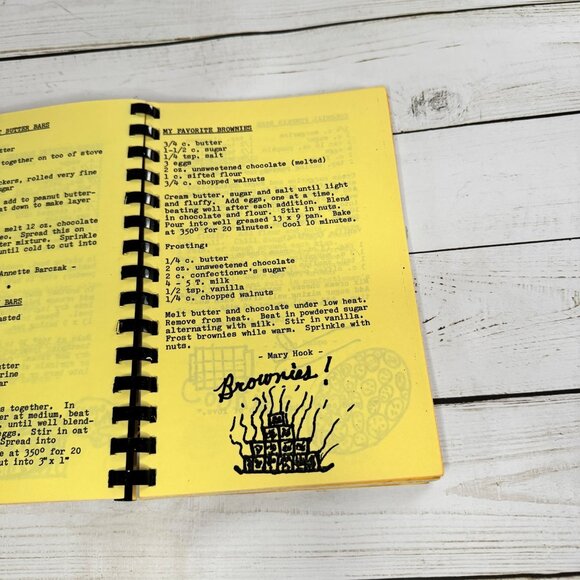 T BUTTER BARS
tter
together on top of stove
ckers, rolled very fine
ugar
add to peanut butter-
at down to make layer
melt 12 oz. chocolate
Spread this on
ter mixture. Sprinkle
until cold to cut into
Annette Barczak -
BARS
asted
tter
arine
ar
s together. In
er at medium, beat
until well blend-
eggs. Stir in oat
Spread into
e at 350° for 20
ut into 3"x 1"
MY FAVORITE BROWNIES
3/4 c. butter
1-1/2 c. sugar
1/4 tsp. salt
3 eggs
2 oz. unsweetened chocolate (melted)
1 c. sifted flour
3/4 c. chopped walnuts
Cream butter, sugar and salt until light
and fluffy. Add eggs, one at a time,
beating well after each addition. Blend
in chocolate and flour. Stir in nuts.
Pour into well greased 13 x 9 pan. Bake
at 350° for 20 minutes. Cool 10 minutes.
Frosting:
1/4 c. butter
2 oz. unsweetened chocolate
2 c. confectioner's sugar
4 - 5 T. milk
1/2 tsp. vanilla
1/4 c. chopped walnuts
Melt butter and chocolate under low heat.
Remove from heat. Beat in powdered sugar
alternating with milk. Stir in vanilla.
Frost brownies while warm. Sprinkle with
nuts.
- Mary Hook -
Brownies!